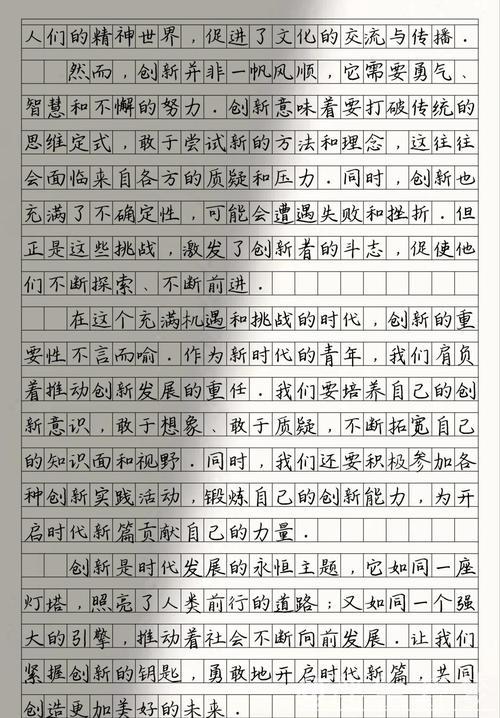 人们的精神世界，促进了文化的交流与传播．
然而，创新并非一帆风顺，它需要勇气、
智慧和不懈的努力．创新意味着要打破传统的
思维定式，敢于尝试新的方法和理念，这往往
会面临来自各方的质疑和压力．同时，创新也
充满了不确定性，可能会遭遇失败和挫折．但
正是这些挑战，激发了创新者的斗志，促使他
们不断探索、不断前进．
在这个充满机遇和挑战的时代，创新的重
要性不言而喻．作为新时代的青年，我们肩负
着推动创新发展的重任．我们要培养自己的创
新意识，敢于想象、敢于质疑，不断拓宽自己
的知识面和视野．同时，我们还要积极参加各
种创新实践活动，锻炼自己的创新能力，为开
启时代新篇贡献自己的力量．
创新是时代发展的永恒主题，它如同一座
灯塔，照亮了人类前行的道路；又如同一个强
大的引擎，推动着社会不断向前发展．让我们
紧握创新的钥匙，勇敢地开启时代新篇，共同
创造更加美好的未来．